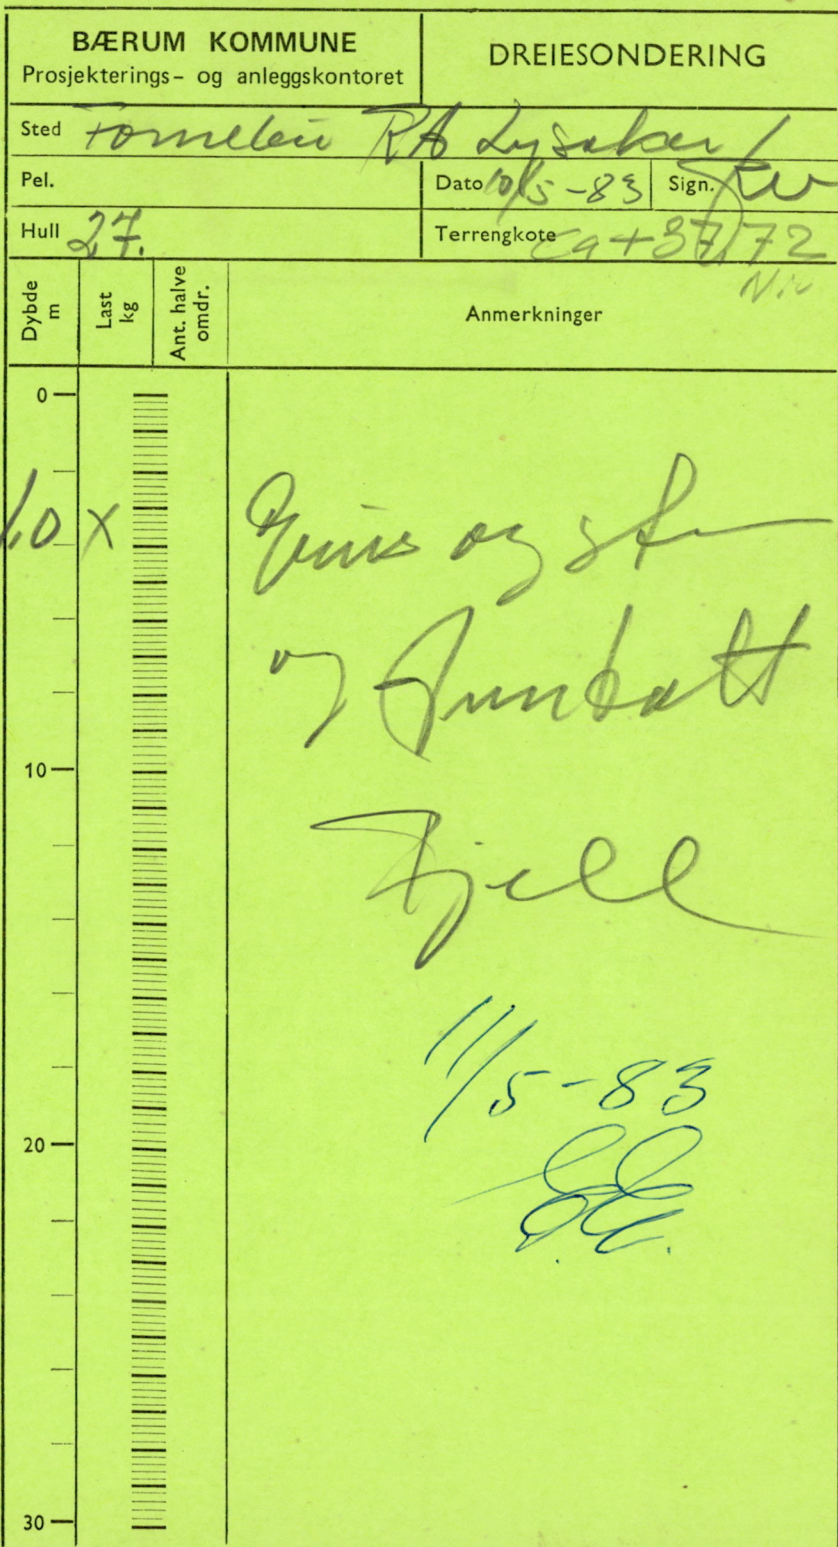 BÆRUM KOMMUNE
Prosjekterings- og anleggskontoret
DREIESONDERING
Sted Lysaker
Pel.
Dato 10/5-83 Sign.
Hull 27.
Terrengkote ca +37,72
Niv
Dybde m
Last kg
Ant. halve omdr.
Anmerkninger
0
1,0 X
og
og
10
Fjell
11/5-83
20
30